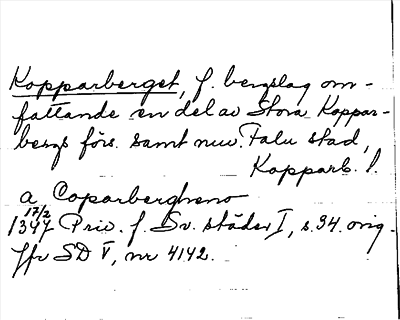 Kopparberget, f. bergslag om-
fattande en del av Stora Koppar-
bergs förs. samt nuv. Falu stad,
Kopparb. l.
a Coparbergheno
17/2
1347 Priv. f. Sv. städer I, s. 34. orig.
Jfr SD V, nr 4142.